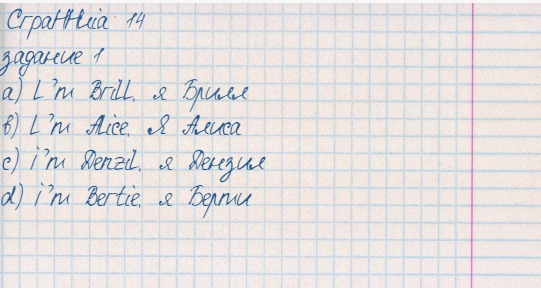 Странніа 14
задание 1
a) I'm Brill. я Брилл
b) I'm Alice. Я Алиса
c) i'm Denzil. я Дензил
d) i'm Bertie. я Берти